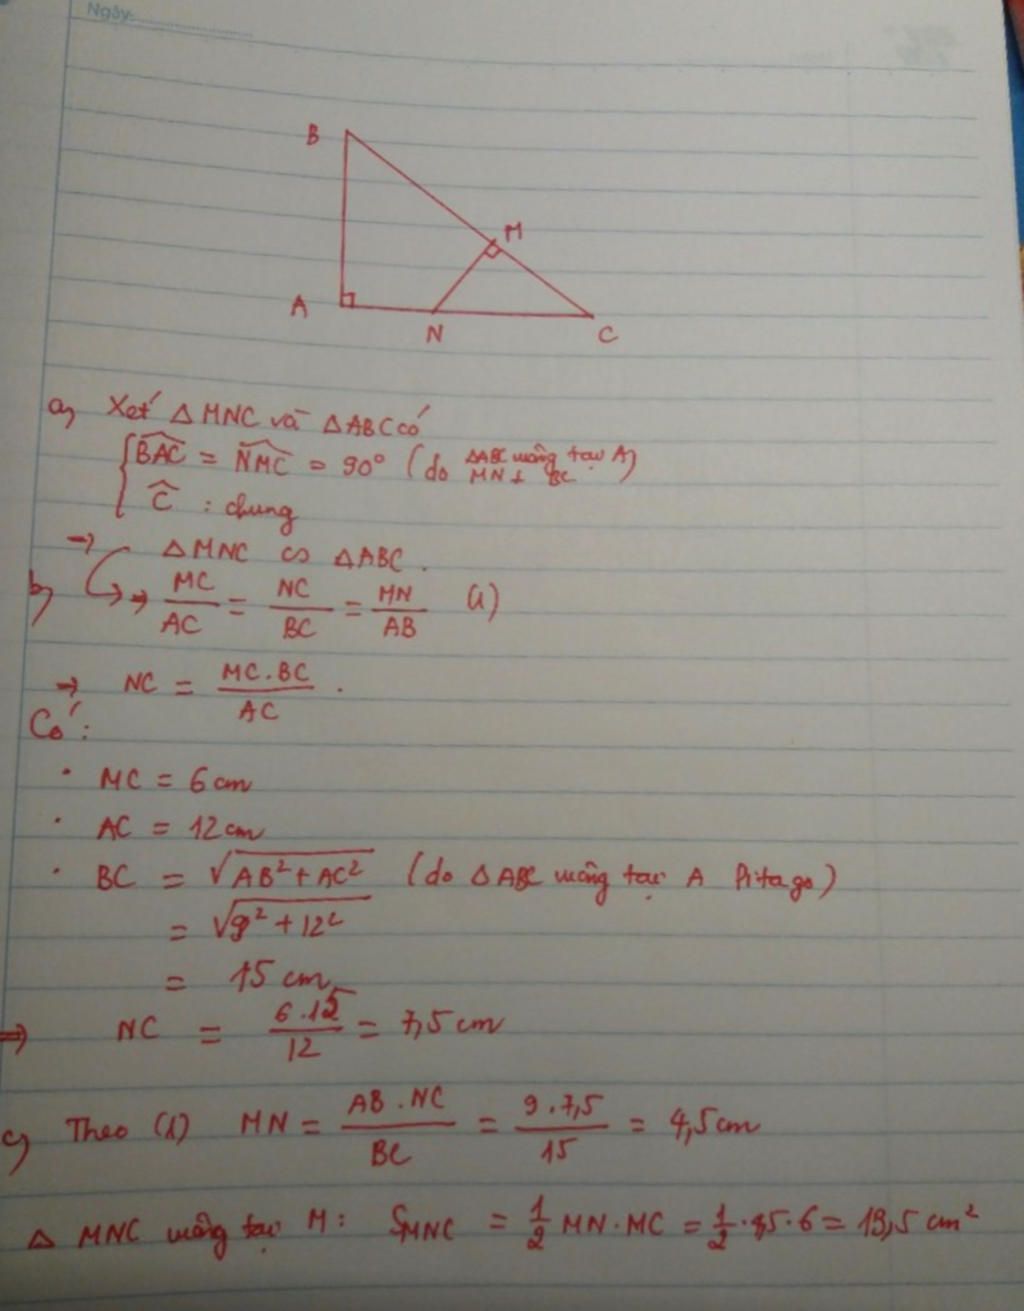 Ngày:
B
M
A
N
C
a) Xét △MNC và △ABC có
BAC = NMC = 90° (do △ABC vuông tại A
MN ⊥ BC)
C : chung
→ △MNC ∽ △ABC.
b) → MC/AC = NC/BC = MN/AB (1)
→ NC = MC.BC/AC.
Có:
• MC = 6cm
• AC = 12cm
• BC = √AB²+AC² (do △ABC vuông tại A Pitago)
= √9²+12²
= 15 cm
⇒ NC = 6.15/12 = 7,5 cm
c) Theo (1) MN = AB.NC/BC = 9.7,5/15 = 4,5cm
△ MNC vuông tại M: SMNC = 1/2 MN.MC = 1/2.4,5.6 = 13,5 cm²